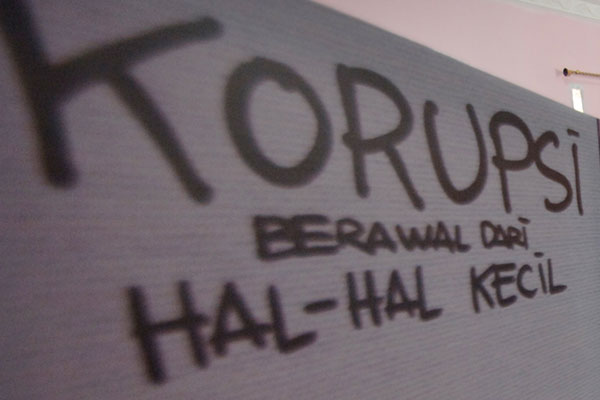 KORUPSi
BERAWAL DARi
HAL-HAL KECiL